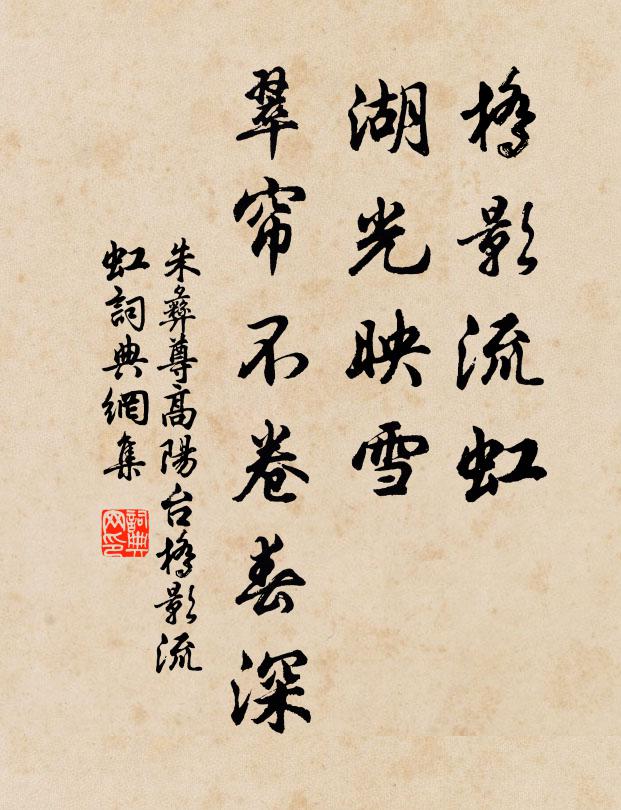 橋影流虹
湖光映雪
翠帘不卷春深
朱彝尊高陽台橋影流
虹詞典網集
詞典
网印